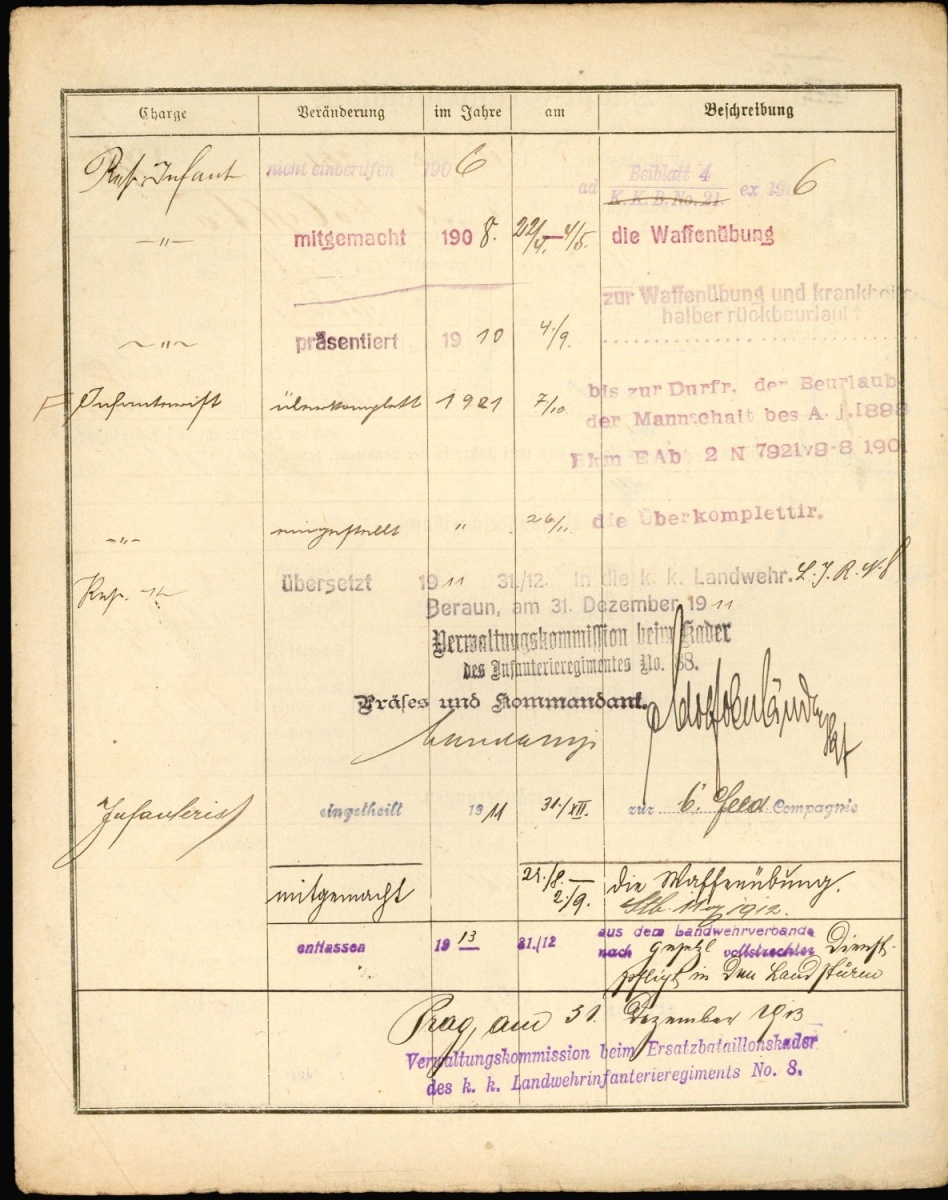 Charge Veränderung im Jahre am Beschreibung
Res. Infant nicht einberufen 1906 ad Beiblatt 4
K. K. B. No. 21 ex 1906
—"— mitgemacht 1908. 22/4.—4/5. die Waffenübung
zur Waffenübung und krankheits
halber rückbeurlaubt
—"— präsentiert 1910 4./9.
Infanterist überkomplett 7/10 bis zur Durfr. der Beurlaub.
der Mannschaft bes A. j. 1898
EAb 2 N 7921 v 9-8 190
—"— eingestellt " 26/11 die Überkomplettir.
Res. übersetzt 1911 31./12. in die k. k. Landwehr. L. J. R. N. 8
Beraun, am 31. Dezember 1911
Verwaltungskommission beim Kader
des Infanterieregimentes No. 88.
Präses und Kommandant.
Infanterist eingetheilt 1911 31./XII. zur 6. Feld Compagnie
mitgemacht 2./9. die Waffenübung.
1912.
entlassen 1913 31./12 aus dem Landwehrverbande
nach gesetzl vollstreckter Dienst-
pflicht in den Landsturm
Prag, am 31. Dezember 1913
Verwaltungskommission beim Ersatzbataillonskader
des k. k. Landwehrinfanterieregiments No. 8.